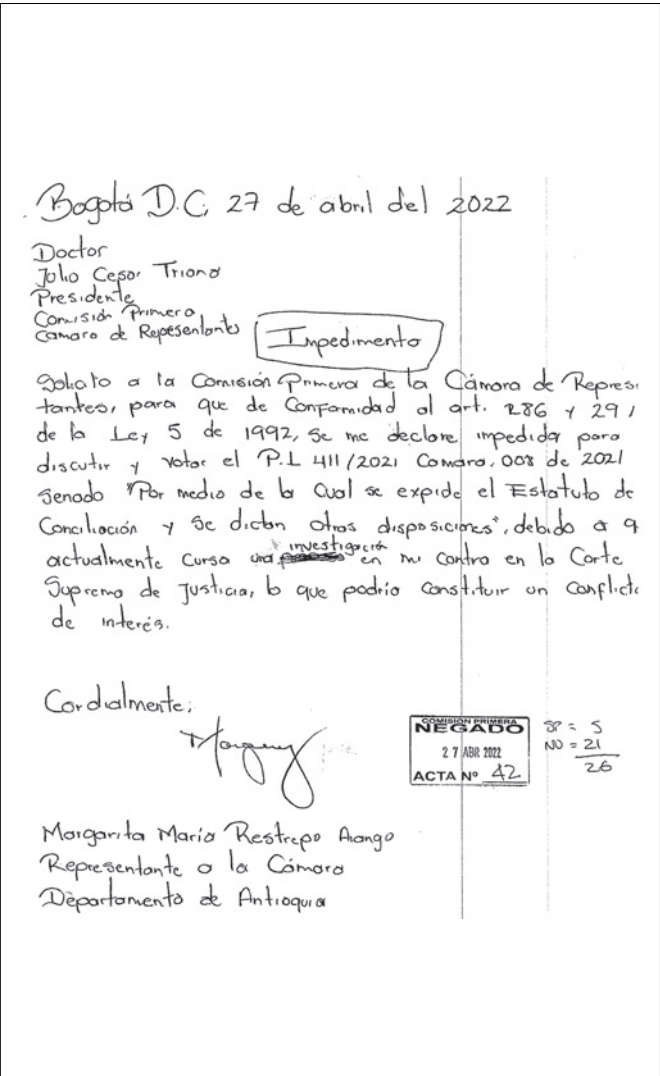 Bogotá D.C, 27 de abril del 2022
Doctor
Julio Cesar Triana
Presidente
Comisión Primera
Camara de Representantes
Impedimento
Solicito a la Comisión Primera de la Cámara de Represen
tantes, para que de Conformidad al art. 286 y 291
de la Ley 5 de 1992, se me declare impedida para
discutir y votar el P.L 411/2021 Camara, 008 de 2021
Senado "Por medio de la Cual se expide el Estatuto de
Conciliación y se dictan otras disposiciones", debido a q
actualmente cursa una investigación en mi contra en la Corte
Suprema de Justicia, lo que podria constituir un conflicto
de interés.
Cordialmente,
COMISIÓN PRIMERA
NEGADO
27 ABR 2022
ACTA Nº 42
SI = 5
NO = 21
26
Margarita Maria Restrepo Arango
Representante a la Cámara
Departamento de Antioquia